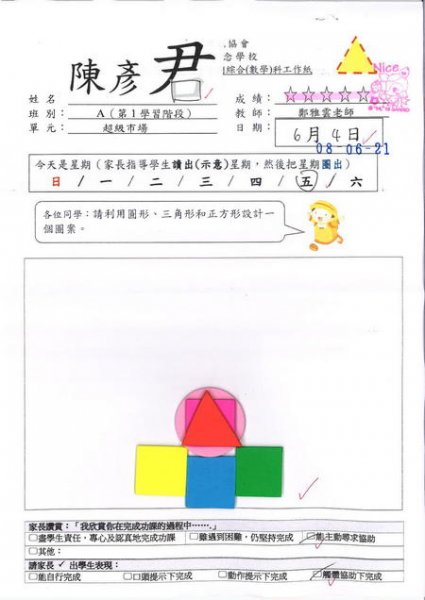 協會
念學校
綜合(數學)科工作紙
Nice
陳彥君
姓名：
成績：☆☆☆☆☆
班別： A（第1學習階段）
教師： 鄭雅雲老師
單元： 超級市場
日期： 6月4日
08-06-21
今天是星期（家長指導學生讀出(示意)星期，然後把星期圈出）
日 / 一 / 二 / 三 / 四 / 五 / 六
各位同學：請利用圓形、三角形和正方形設計一
個圖案。
家長讚賞：「我欣賞你在完成功課的過程中……」
□盡學生責任，專心及認真地完成功課 □雖遇到困難，仍堅持完成 □能主動尋求協助
□其他：
請家長 ✓ 出學生表現：
□能自行完成 □口頭提示下完成 □動作提示下完成 □觸體協助下完成